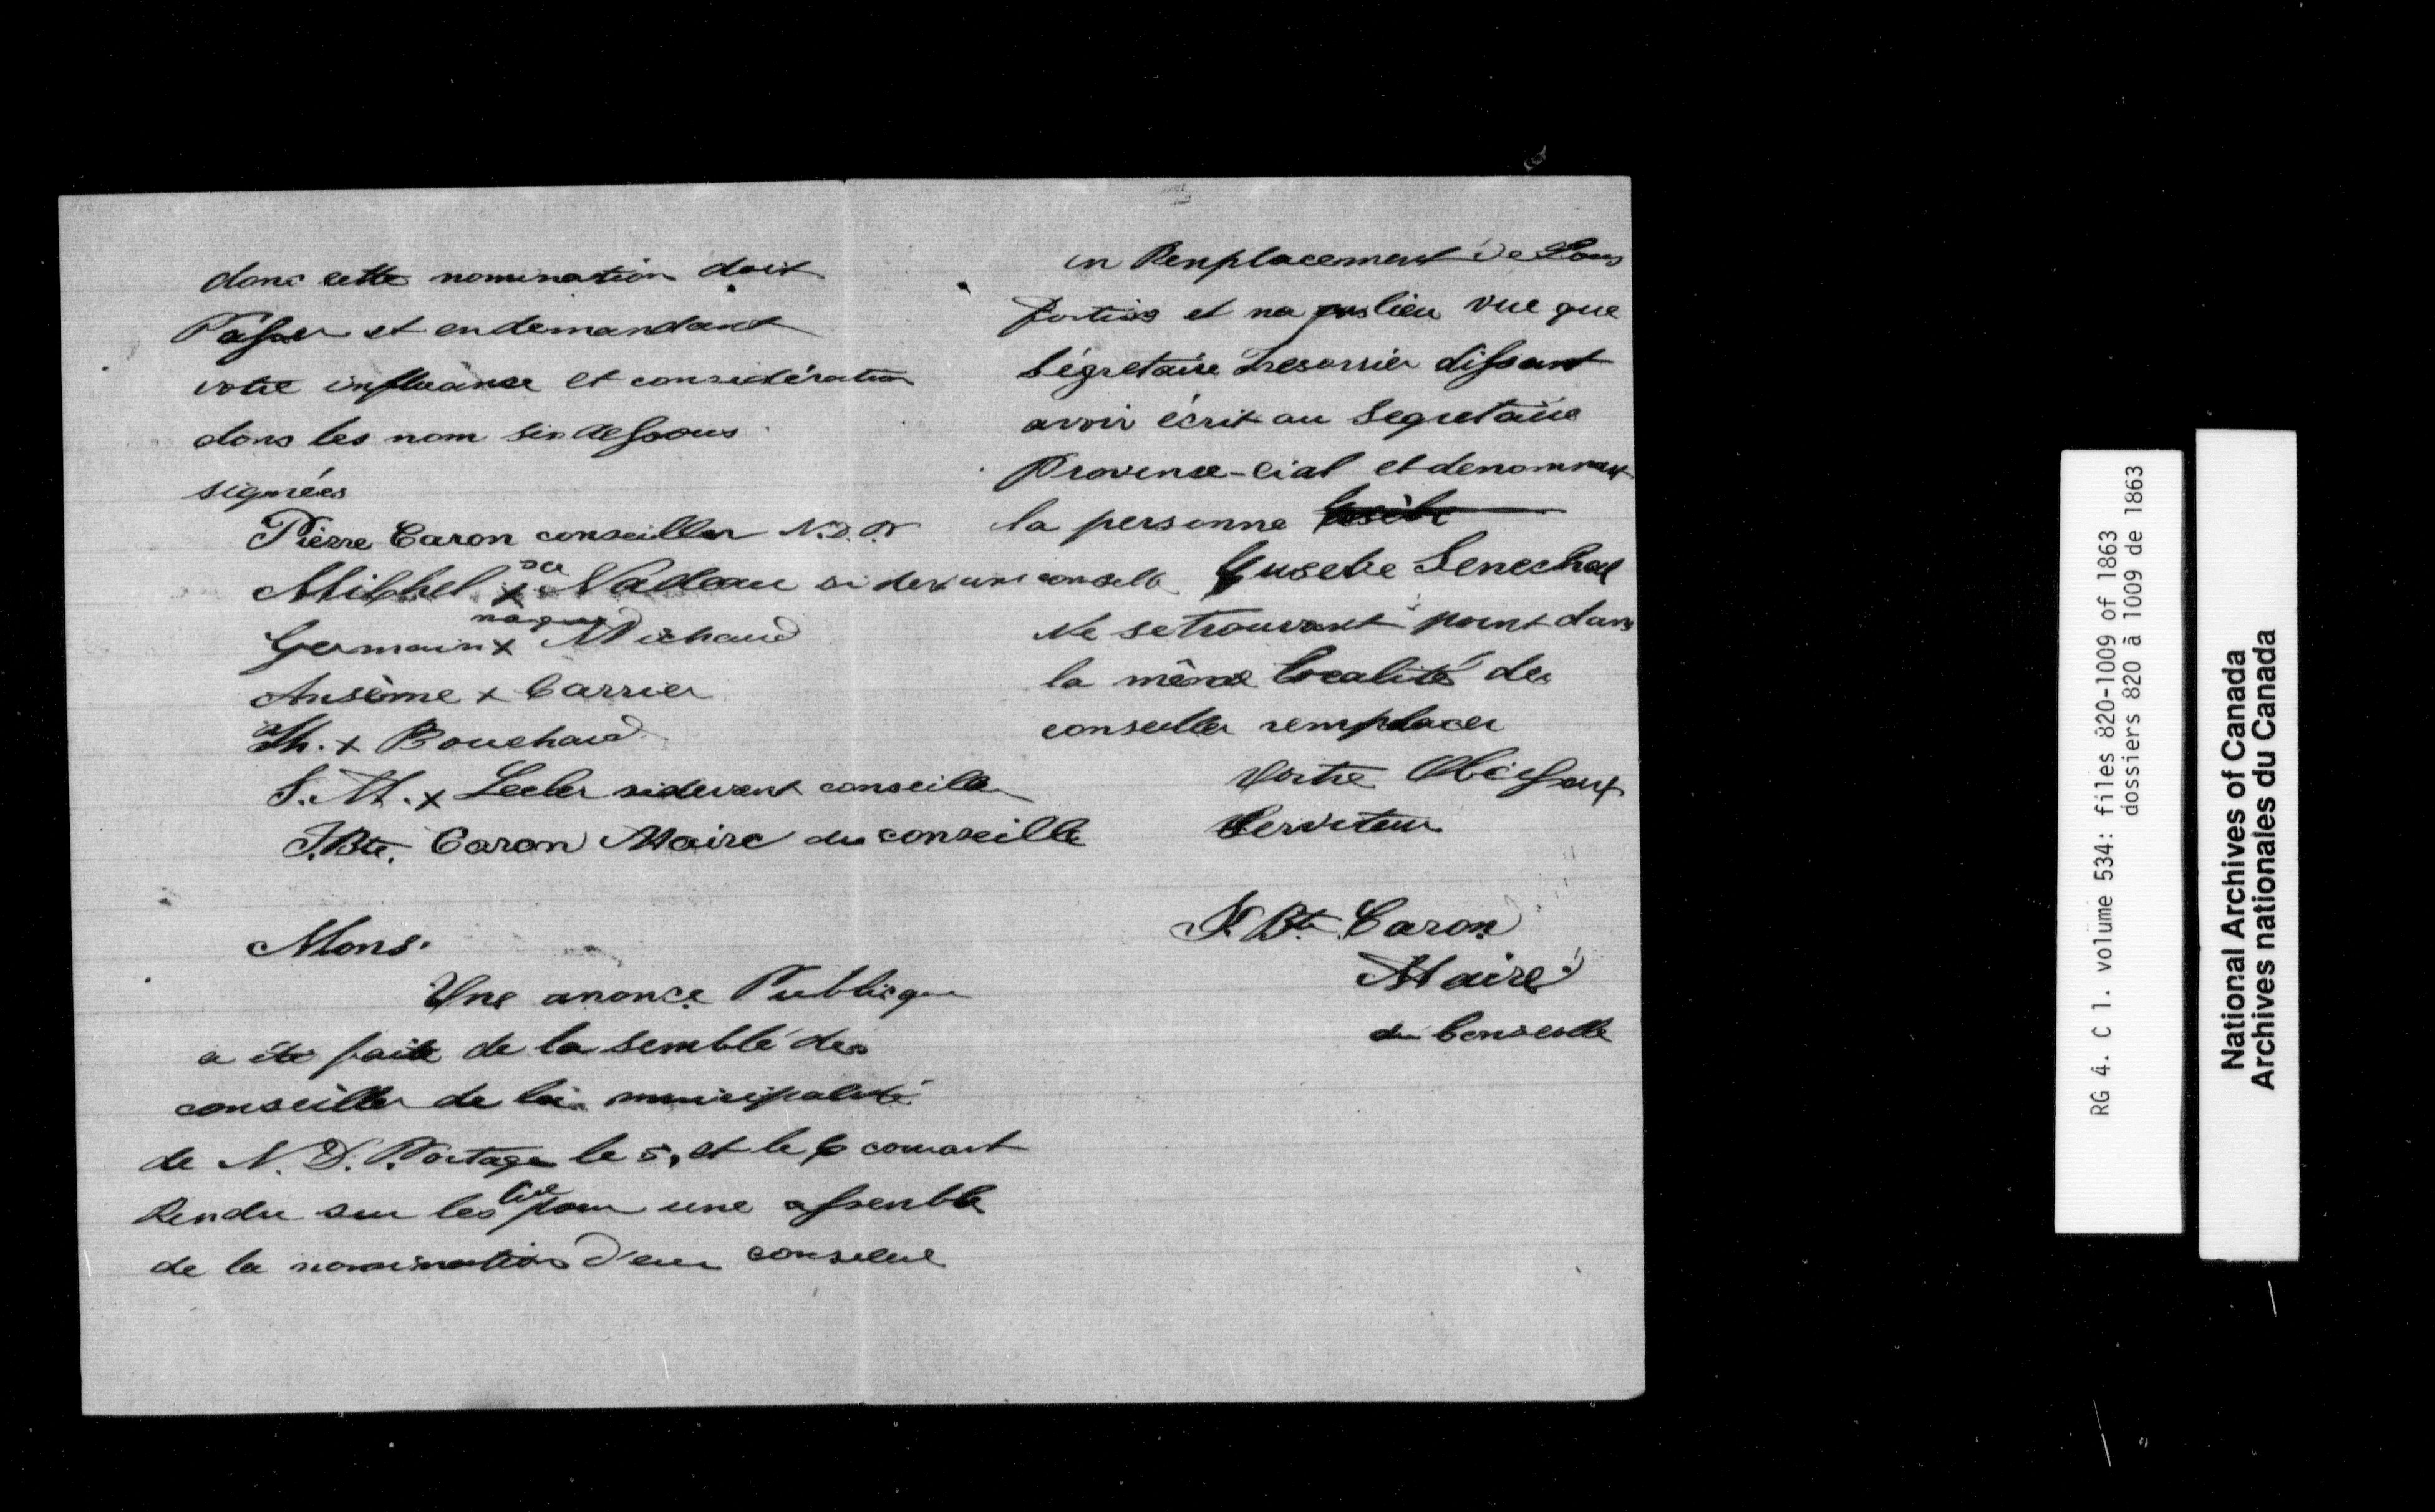 donc cette nomination doit
Passer et en demandant
votre influance et considération
dons les nom sin dessous
signées
Pierre Caron conseiller N.D.P
Michel x Nadeau si devant conseille
sa
marque
Germain x Michaud
Ansème x Carrier
Th. x Bouchard
J. M. x Lecler sidevant conseiller
J.Bte. Caron Maire du conseille
Mons.
Une anonce Publique
a été faite de la semblé des
conseiller de la municipalité
de N. D. Portage le 5, et le 6 courant
Rendu sur les lieu pour une assemblé
de la nomination d'un
en Renplacement de
et na pas lieu vue que
Ségretaire Tresorrier dissant
avoir écrit au Segretaire
Province-cial et denommant
la personne
Eusebe Senechal
Ne se trouvant point dans
la même localité du
conseiller remplacer
Votre Obeissant
Serviteur
J. Bte Caron
Maire
du Conseille
RG 4. C 1. volume 534: files 820-1009 of 1863
dossiers 820 à 1009 de 1863
National Archives of Canada
Archives nationales du Canada